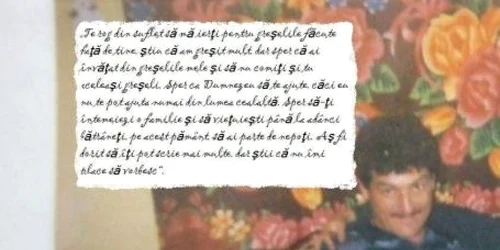 „Te rog din suflet să mă ierți pentru greșelile făcute
față de tine, știu că am greșit mult dar sper că ai
învățat din greșelile mele și să nu comiți și tu
aceleași greșeli. Sper ca Dumnezeu să te ajute, căci eu
nu te pot ajuta numai din lumea cealaltă. Sper să-ți
întemeiezi o familie și să viețuiești până la adânci
bătrâneți, pe acest pământ, să ai parte de nepoți. Aș fi
dorit să îți pot scrie mai multe, dar știi că nu îmi
place să vorbesc”.